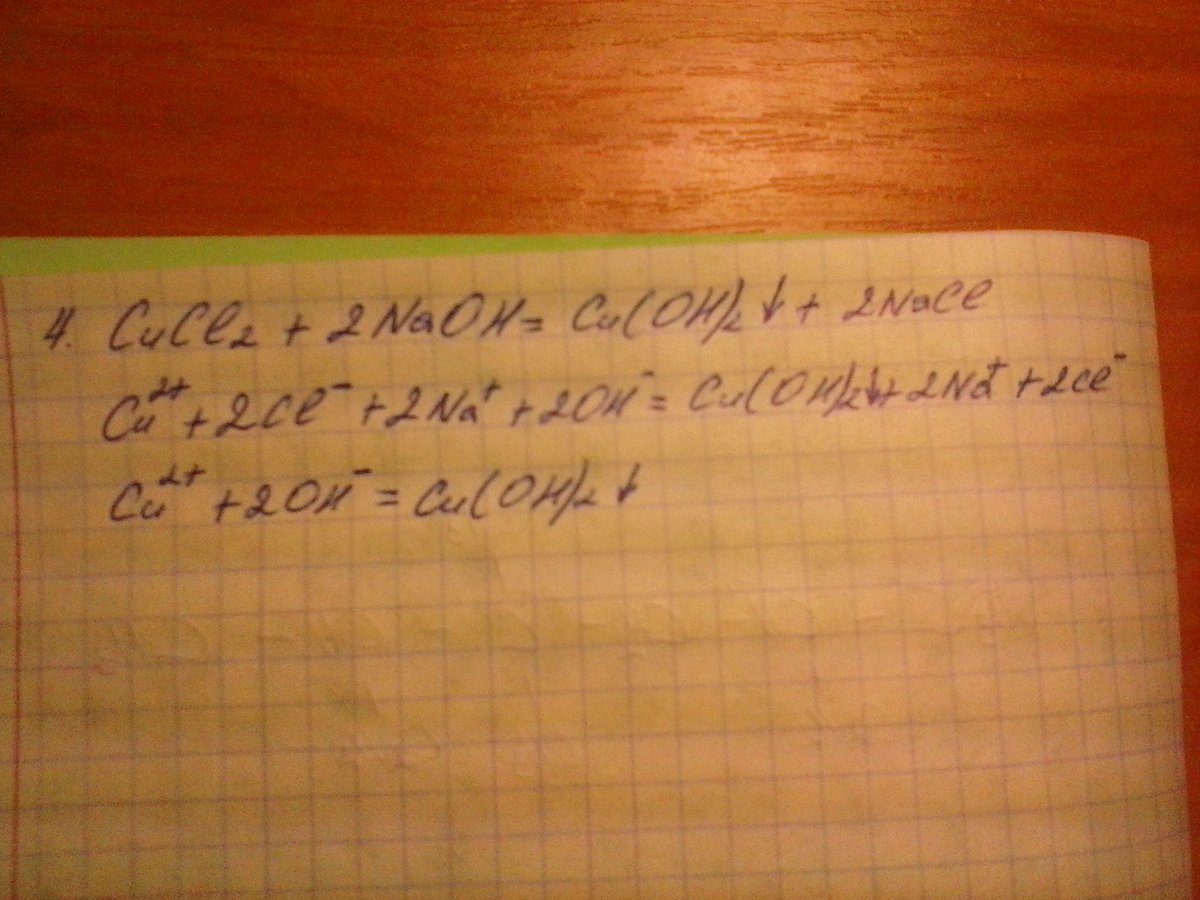 4. CuCl₂ + 2NaOH = Cu(OH)₂↓ + 2NaCl
Cu²⁺ + 2Cl⁻ + 2Na⁺ + 2OH⁻ = Cu(OH)₂↓ + 2Na⁺ + 2Cl⁻
Cu²⁺ + 2OH⁻ = Cu(OH)₂↓